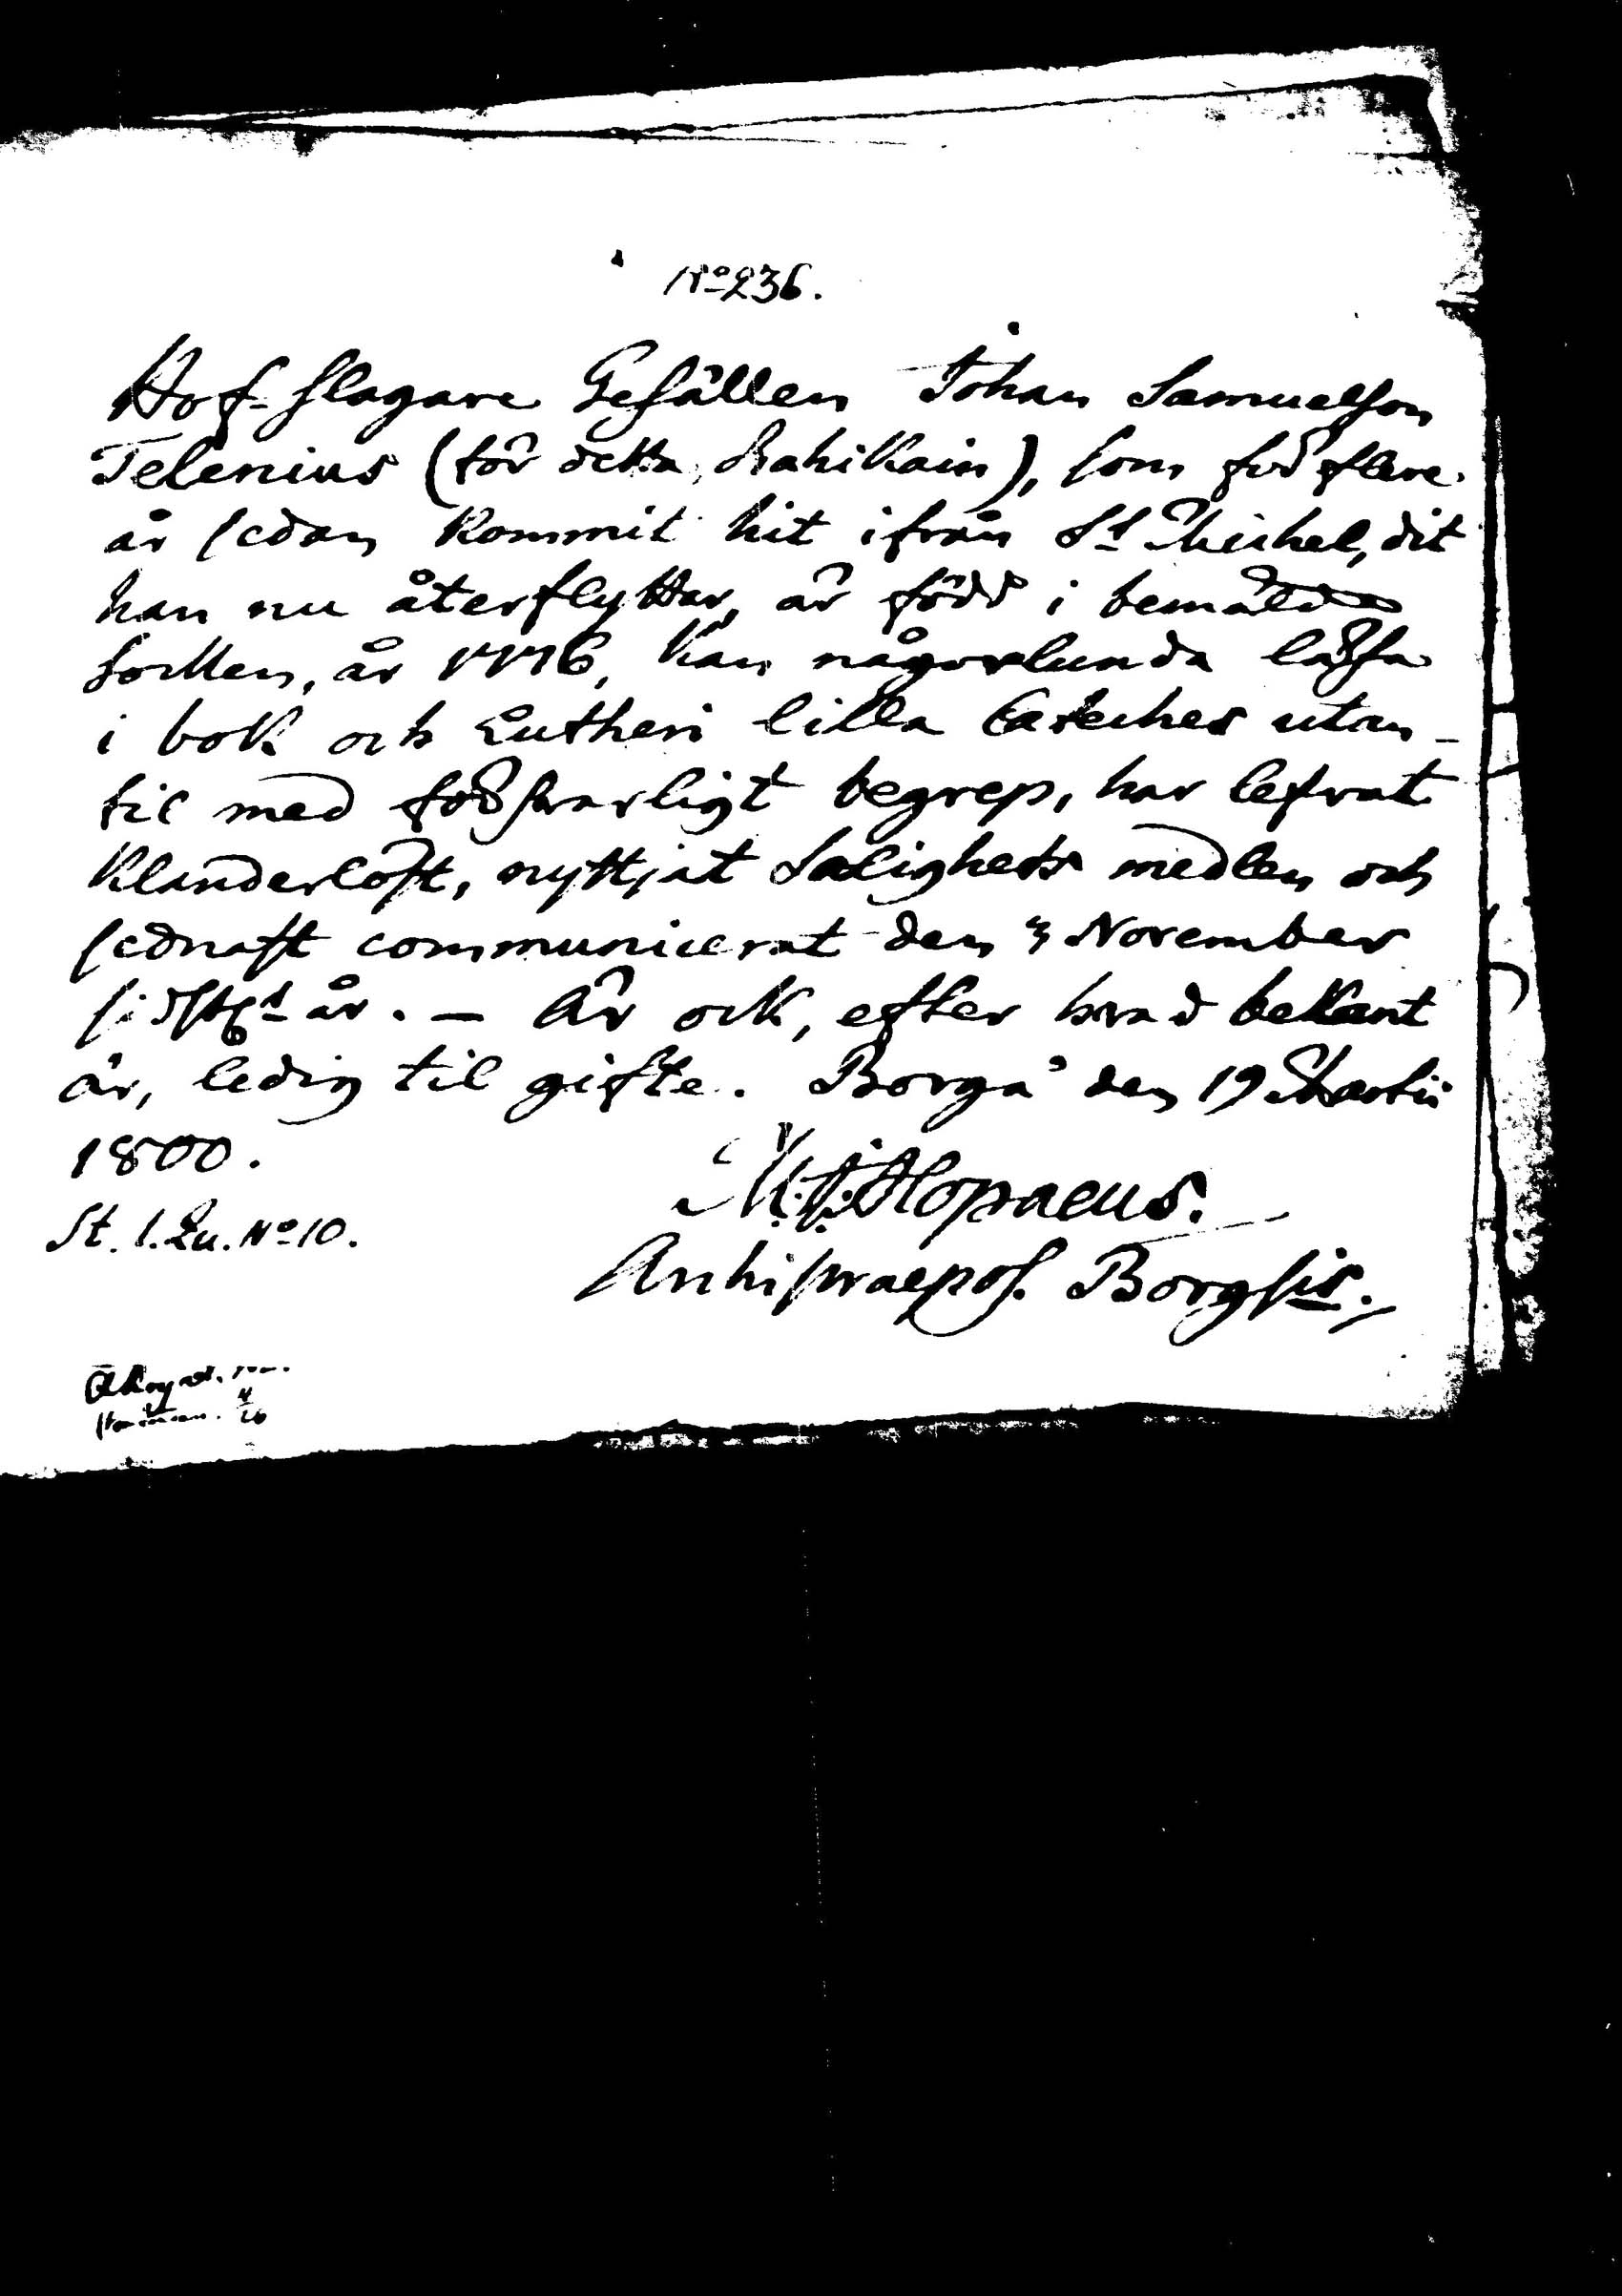 No 236.
Hof-slagare Gesällen Johan Samuelson
Telenius (för detta, Rahikain), som för flere
år sedan kommit hit ifrån St Michel, dit
han nu återflyttar, är född i bemälde
Socken, år 1776, kan någorlunda läsa
i bok och Lutheri lilla Cateches utan-
til med försvarligt begrep, har lefvat
klanderlöst, nyttjat Salighets medlen och
sednast communicerat den 3 November
sidstl. år. - Är ock, efter hvad bekant
är, ledig til gifte. Borgå den 19 Martii
1800.
M. J. Alopaeus.
St. 1. Qu. No 10.
Archipraepos. Borgsis.